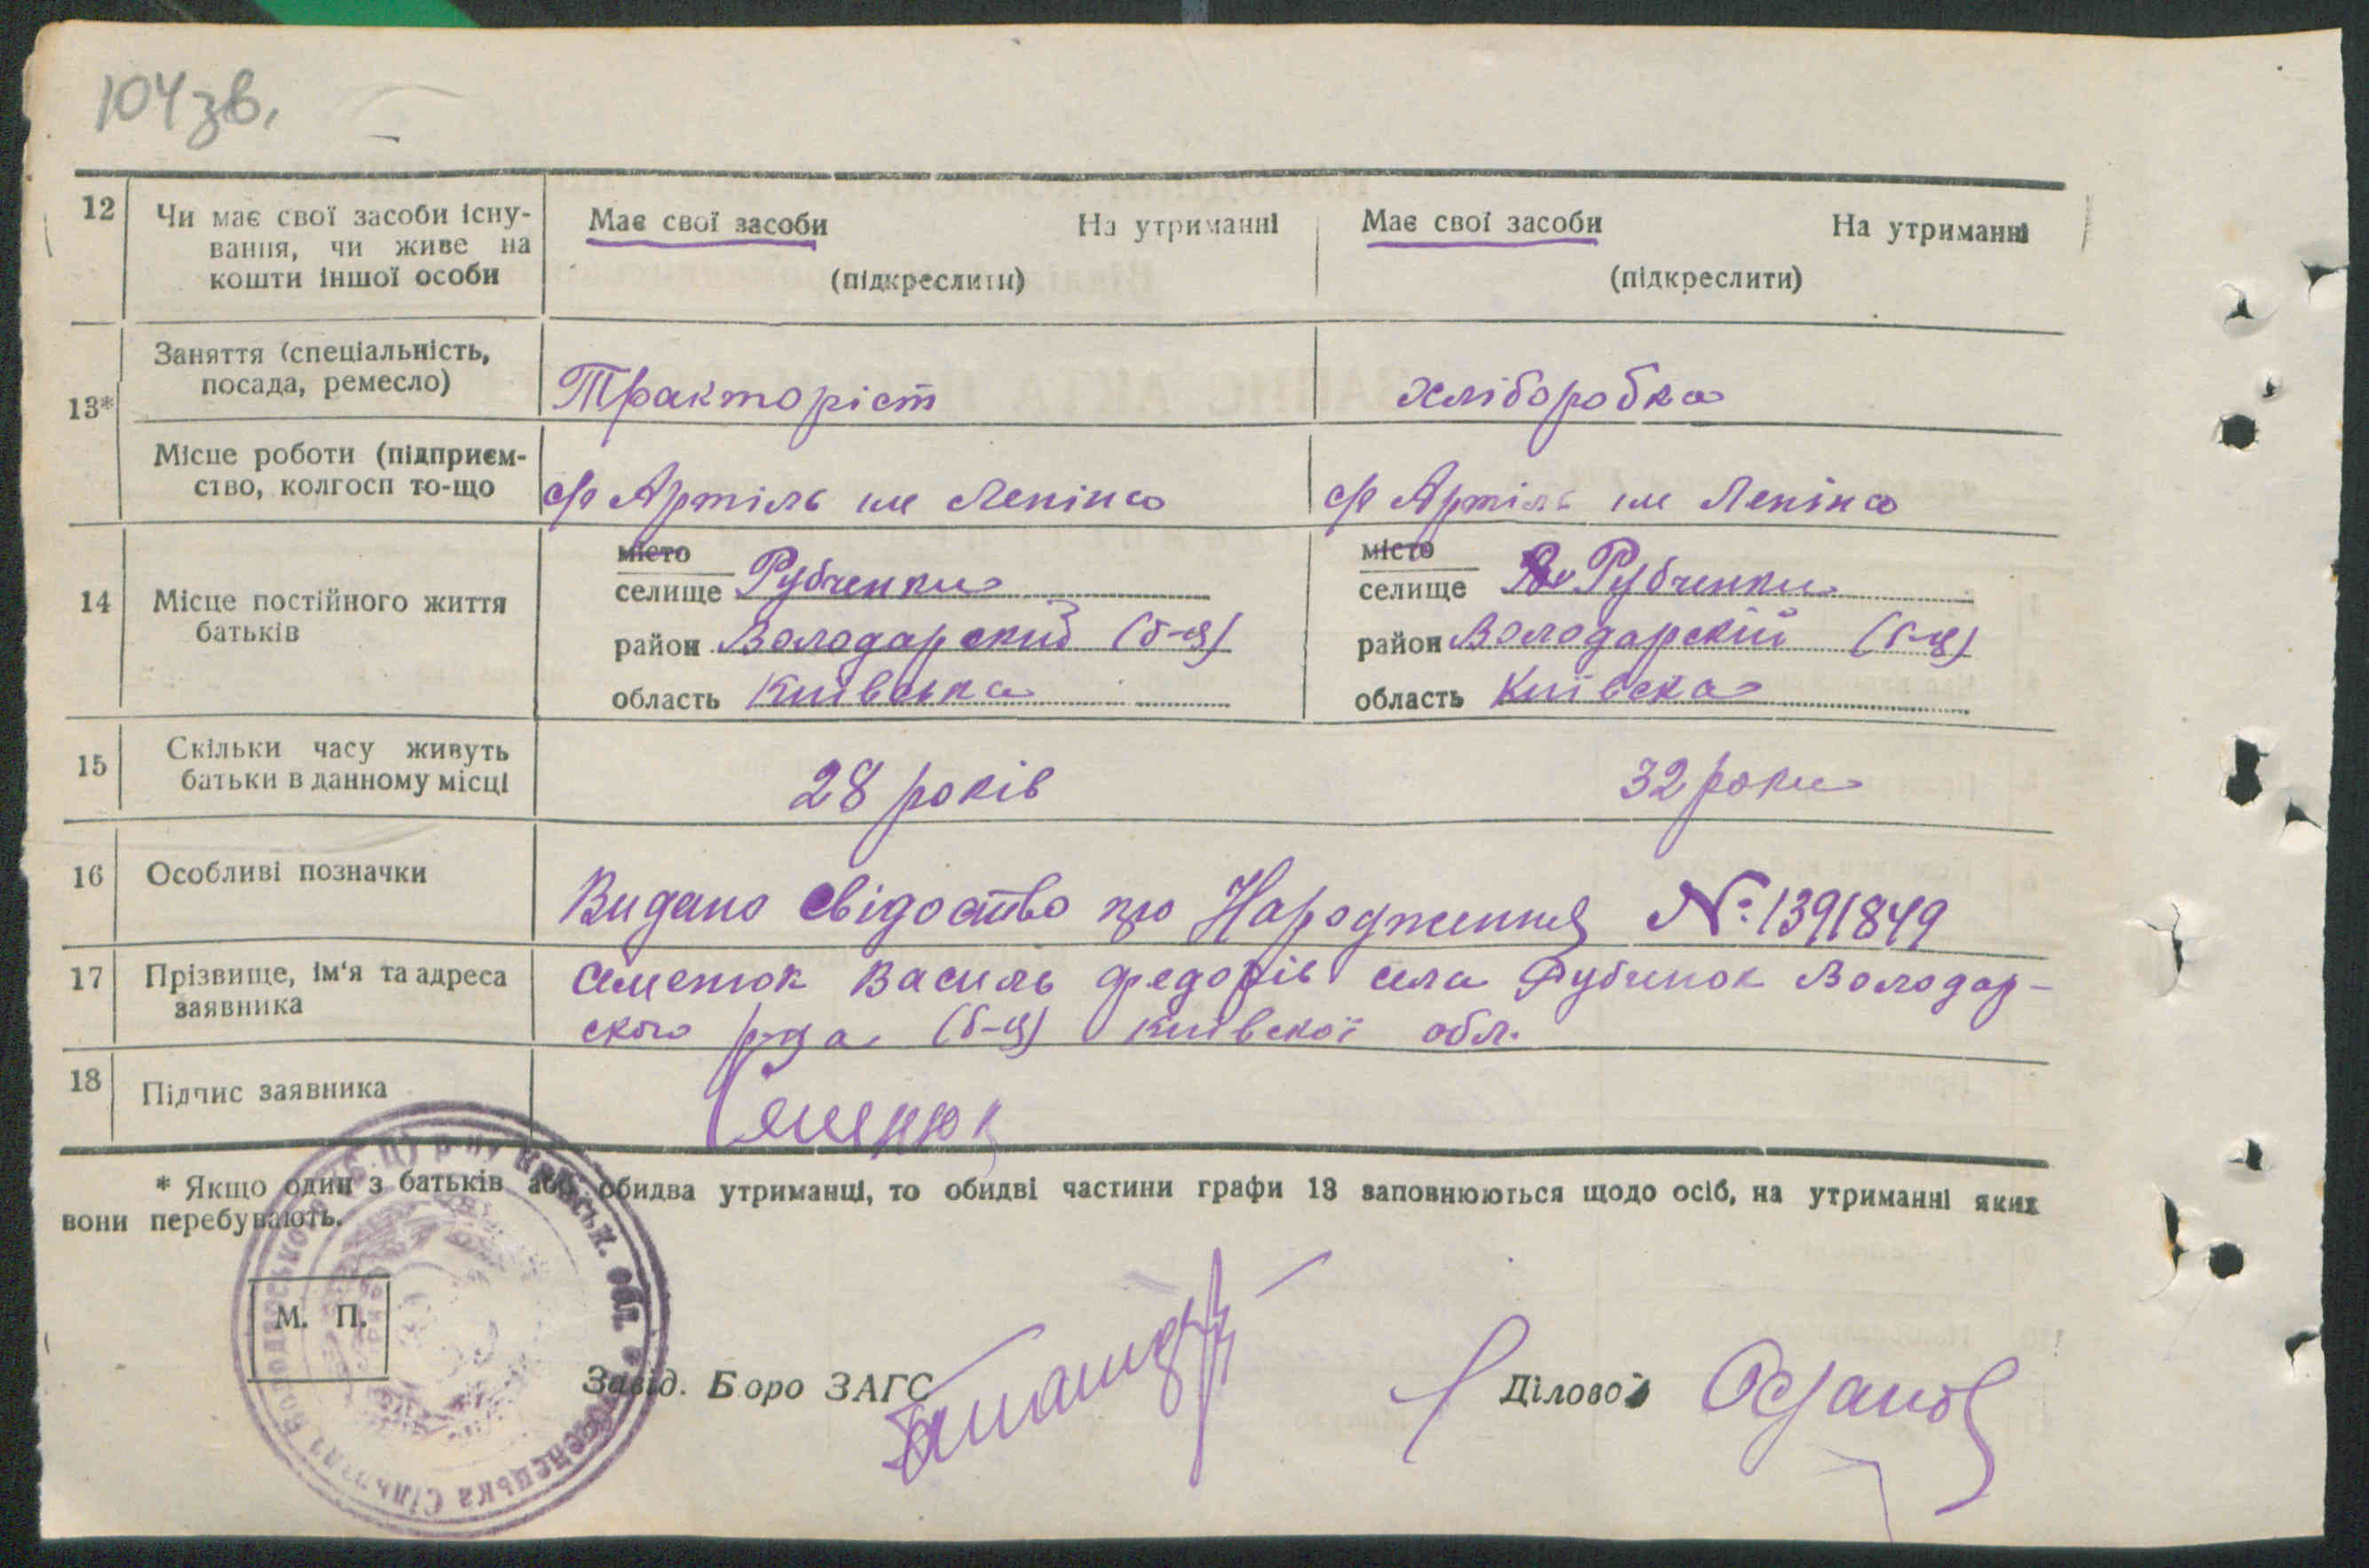 104зв.
12 Чи має свої засоби існу- Має свої засоби На утриманні Має свої засоби На утриманні
вання, чи живе на
кошти іншої особи (підкреслити) (підкреслити)
Заняття (спеціальність,
посада, ремесло) Тракторіст хліборобка
13*
Місце роботи (підприєм-
ство, колгосп то-що с/г Артіль им Леніна с/г Артіль им Леніна
місто місто
селище Рубченки селище Рубченки
14 Місце постійного життя
батьків
район Володарский (б-ц) район Володарскій (б-ц)
область Київська область Київска
15 Скільки часу живуть
батьки в данному місці 28 років 32 роки
16 Особливі позначки Видано свідоство про Народження №1391849
17 Прізвище, ім'я та адреса Семенюк Василь федорів села Рубченок Володар-
заявника ского р-да (б-ц) київскої обл.
18 Підпис заявника Семенюк
* Якщо один з батьків або обидва утриманці, то обидві частини графи 13 заповнюються щодо осіб, на утриманні яких
вони перебувають.
М. П.
Завід. Боро ЗАГС Діловод